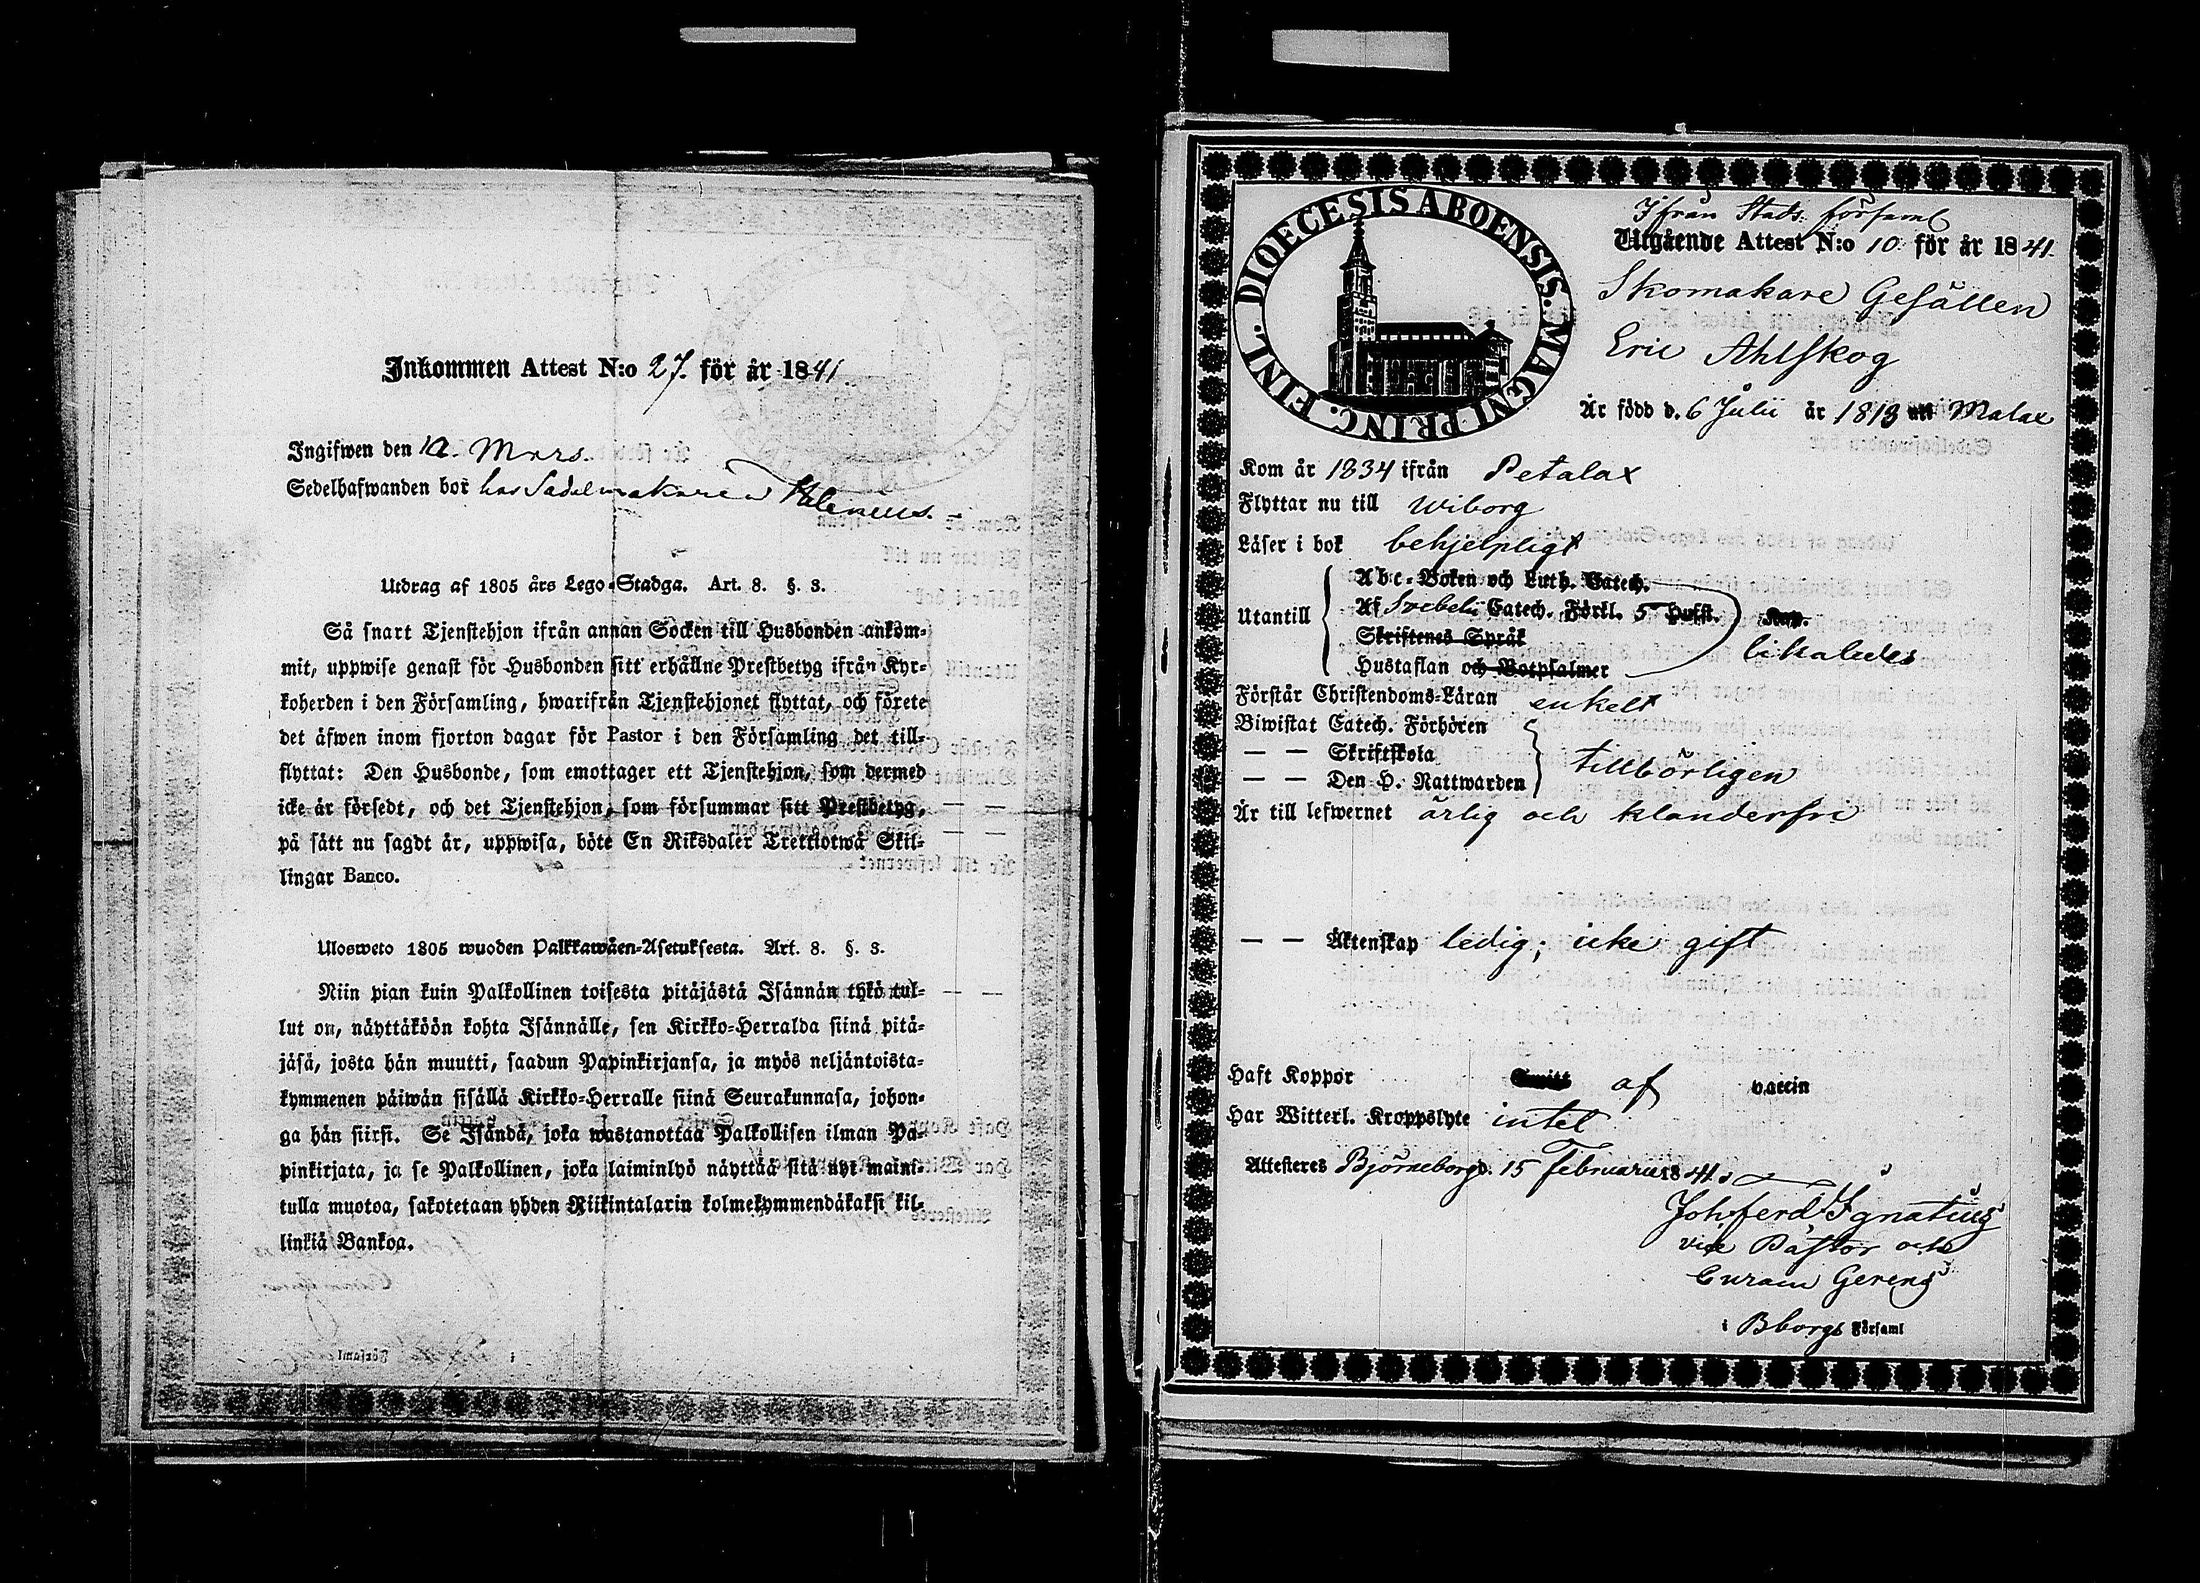 Inkommen Attest N:o 27. för år 1841
Ingifwen den 12. Mars.
Sedelhafwanden bor hos Sadelmakaren
Utdrag af 1805 års Lego-Stadga. Art. 8. §. 3.
Så snart Tjenstehjon ifrån annan Socken till Husbonden ankom-
mit, uppwise genast för Husbonden sitt erhållne Prestbetyg ifrån Kyr-
koherden i den Församling, hwarifrån Tjenstehjonet flyttat, och förete
det äfwen inom fjorton dagar för Pastor i den Församling det till-
flyttat: Den Husbonde, som emottager ett Tjenstehjon, som dermed
icke är försedt, och det Tjenstehjon, som försummar sitt Prestbetyg,
på sätt nu sagdt är, uppwisa, böte En Riksdaler Trettiotwå Skil-
lingar Banco.
Ulosweto 1805 wuoden Palkkawäen-Asetuksesta. Art. 8. §. 3.
Niin pian kuin Palkollinen toisesta pitäjästä Isännän tykö tul-
lut on, näyttäköön kohta Isännälle, sen Kirkko-Herralda siinä pitä-
jäsä, josta hän muutti, saadun Papinkirjansa, ja myös neljäntoista-
kymmenen päiwän sisällä Kirkko-Herralle siinä Seurakunnasa, johon-
ga hän siirsi. Se Isändä, joka wastanottaa Palkollisen ilman Pa-
pinkirjata, ja se Palkollinen, joka laiminlyö näyttää sitä nyt maini-
tulla muotoa, sakotetaan yhden Riikintalarin kolmekymmendäkaksi kil-
linkiä Bankoa.
DIOECESIS ABOENSIS. MAGNI PRINC. FINL.
Ifrån Stads. församl
Utgående Attest N:o 10 för år 1841.
Skomakare Gesällen
Eric Ahlskog
Är född d. 6 Julii år 1813 uti Malax
Kom år 1834 ifrån Petalax
Flyttar nu till Wiborg
Läser i bok behjelpligt
Utantill
Abc-Boken och Luth. Catech.
Af Svebelii Catech. Förkl. 5 Hufst. Kap.
Skriftenes Språk
Hustaflan och Botpsalmer
likaledes
Förstår Christendoms-Läran enkelt
Biwistat Catech. Förhören
— — Skriftskola
— — Den H. Nattwarden
tillbörligen
Är till lefwernet ärlig och klanderfri
— — Äktenskap ledig; icke gift
Haft Koppor af vaccin
Har Witterl. Kroppslyte intet
Attesteres Björneborg d. 15 Februarii 1841.
Joh Ferd Ignatius
vice Pastor och
Curam Gerens
i Bborgs Församl